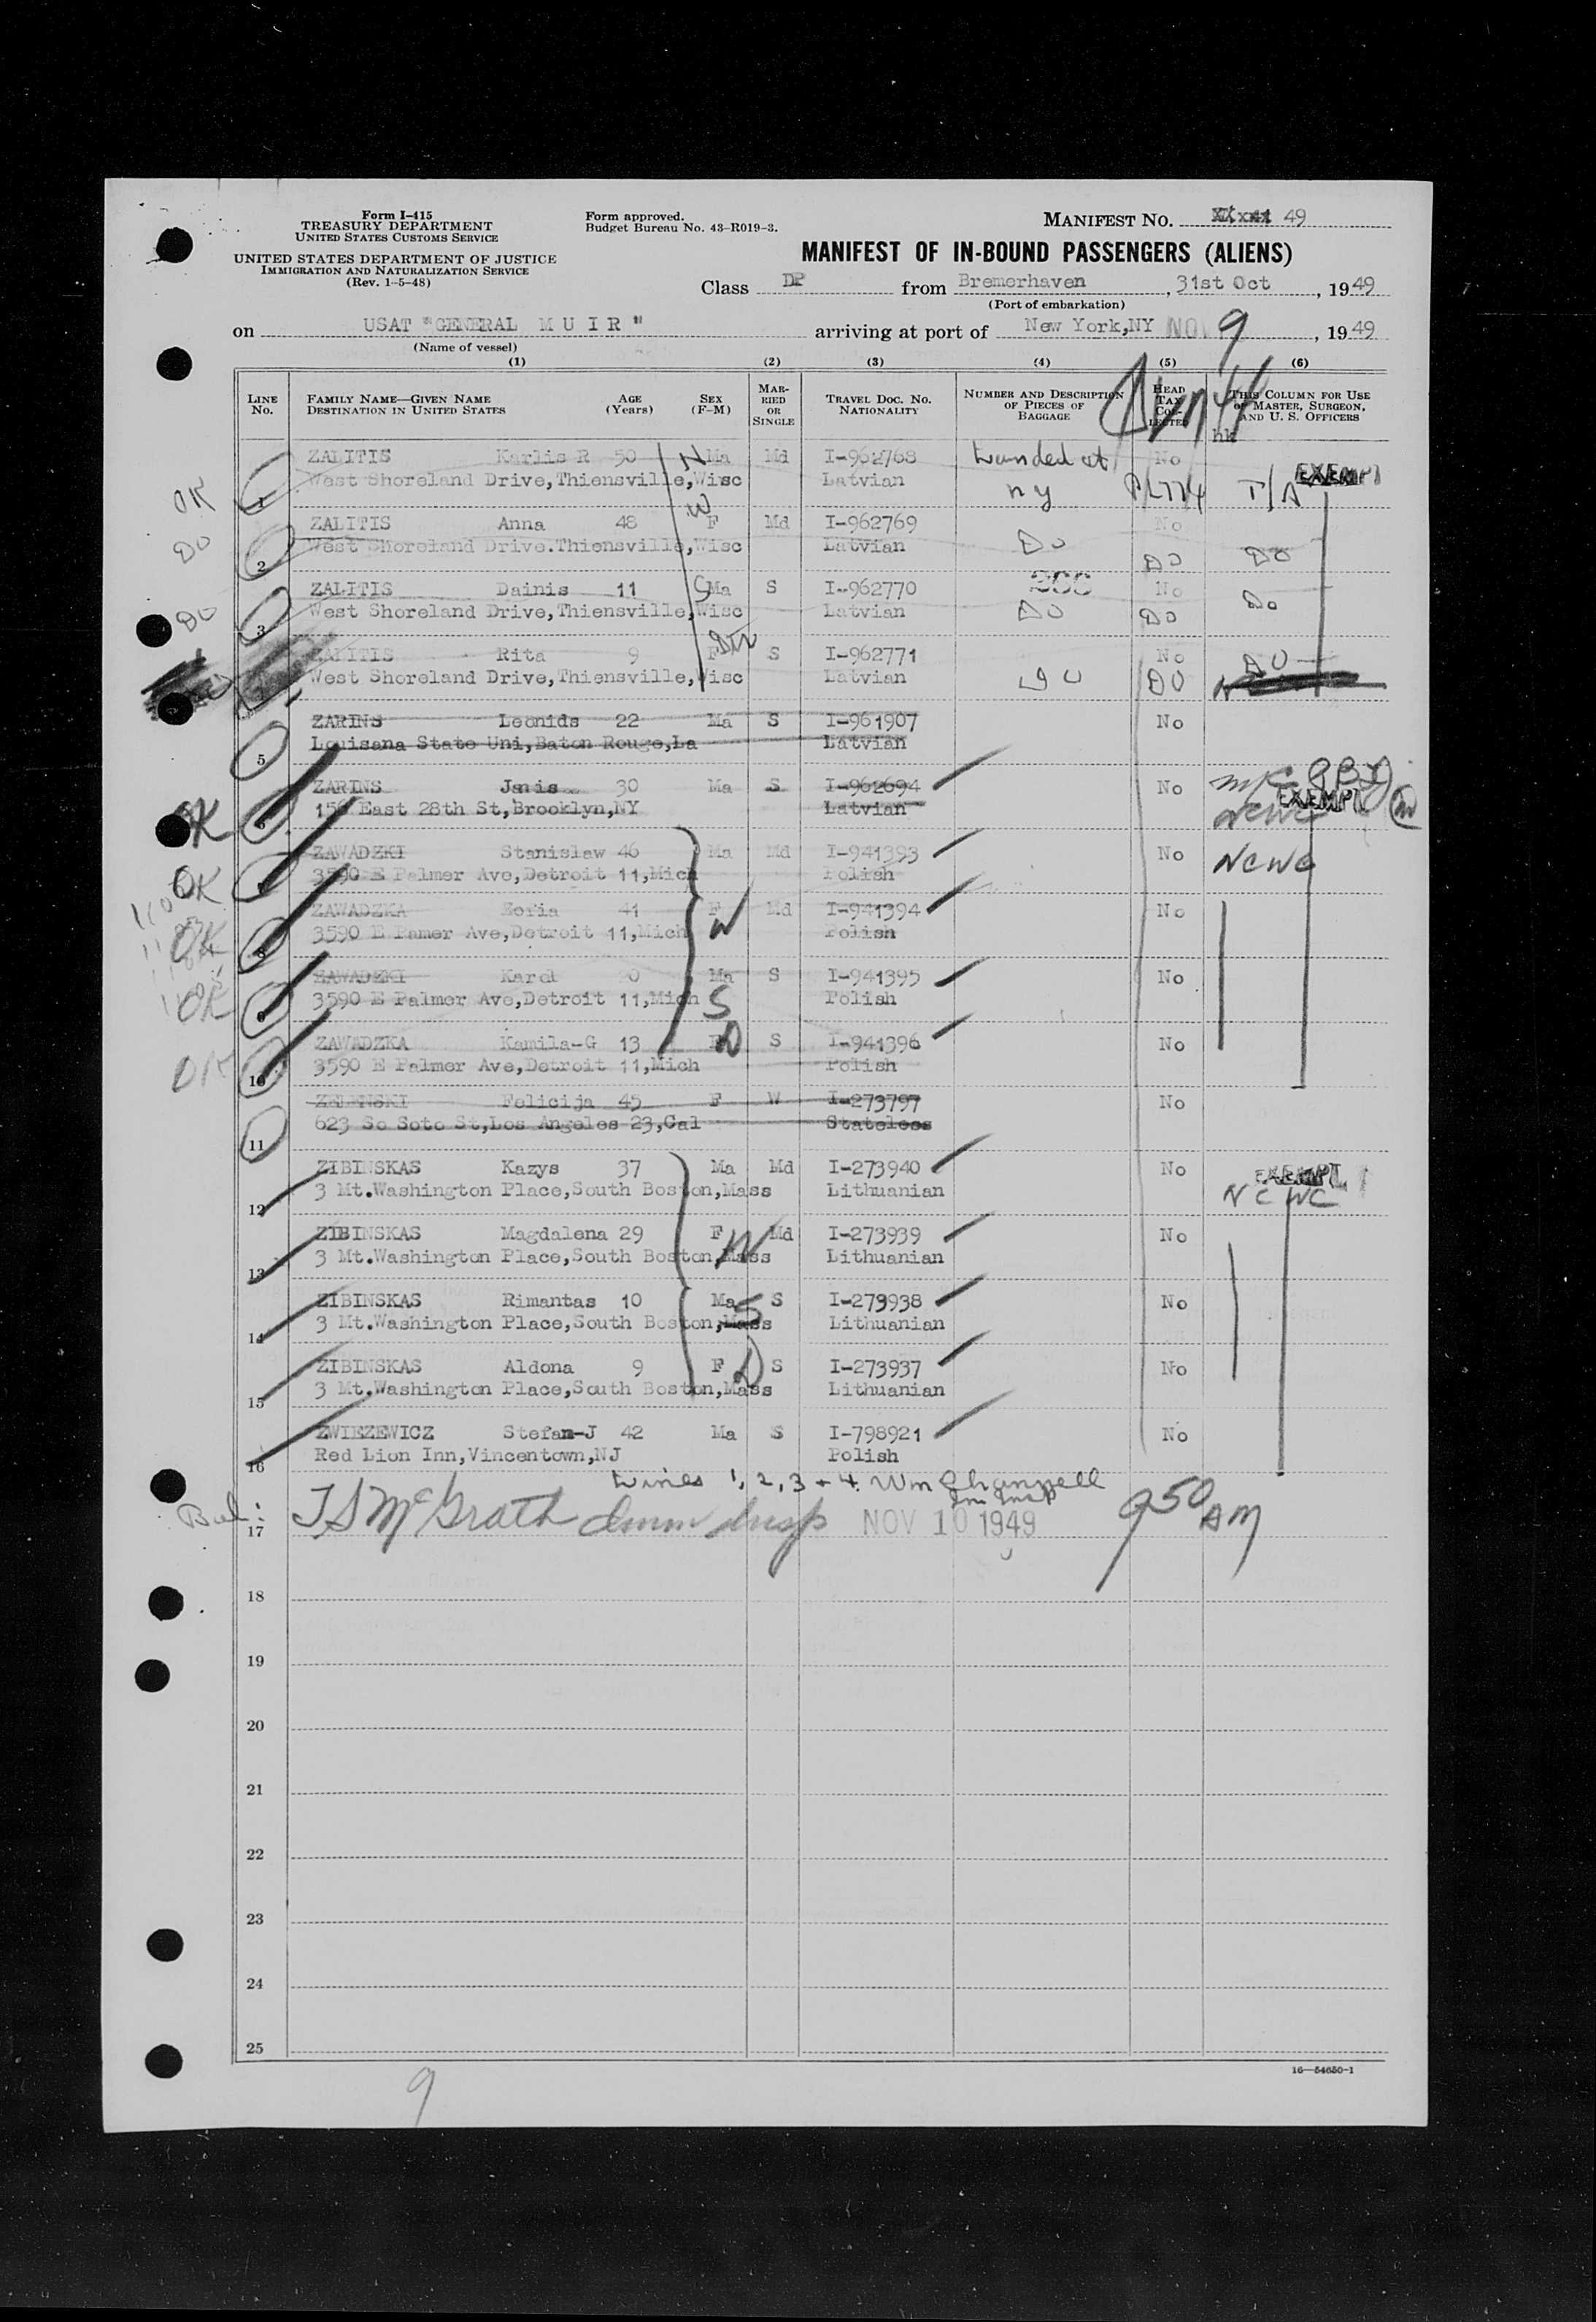 Form I-415
TREASURY DEPARTMENT
UNITED STATES CUSTOMS SERVICE
UNITED STATES DEPARTMENT OF JUSTICE
IMMIGRATION AND NATURALIZATION SERVICE
(Rev. 1-5-48)
Form approved.
Budget Bureau No. 43-R019-3.
MANIFEST NO. 49
MANIFEST OF IN-BOUND PASSENGERS (ALIENS)
Class DP from Bremerhaven, 31st Oct, 1949
(Port of embarkation)
on USAT "GENERAL M U I R" arriving at port of New York,NY NO 9, 1949
(Name of vessel)
(1) (2) (3) (4) (5) (6)
LINE No. FAMILY NAME—GIVEN NAME DESTINATION IN UNITED STATES AGE (Years) SEX (F-M) MARRIED OR SINGLE TRAVEL DOC. NO. NATIONALITY NUMBER AND DESCRIPTION OF PIECES OF BAGGAGE HEAD TAX COLLECTED THIS COLUMN FOR USE OF MASTER, SURGEON, AND U. S. OFFICERS
hk
ZALITIS Karlis R 50 Ma Md I-962768 Landed at No EXEMPT
OK 1 West Shoreland Drive,Thiensville,Wisc Latvian NY PL774 T/A
W
ZALITIS Anna 48 F Md I-962769 No
DO 2 West Shoreland Drive.Thiensville,Wisc Latvian DO DO DO
ZALITIS Dainis 11 S Ma S I-962770 No
DO 3 West Shoreland Drive,Thiensville,Wisc Latvian DO DO DO
ZALITIS Rita 9 F S I-962771 No DO
West Shoreland Drive,Thiensville,Wisc Latvian DO DO
ZARINS Leonids 22 Ma S I-961907 No
5 Louisana State Uni,Baton Rouge,La Latvian
ZARINS Janis 30 Ma S I-962694 No EXEMPT
OK 6 156 East 28th St,Brooklyn,NY Latvian NCWC
ZAWADZKI Stanislaw 46 Ma Md I-941393 No NCWC
OK 7 3590 E Palmer Ave,Detroit 11,Mich Polish
ZAWADZKA Zofia 41 F W Md I-941394 No
OK 8 3590 E Pamer Ave,Detroit 11,Mich Polish
ZAWADZKI Karol Ma S I-941395 No
OK 9 3590 E Palmer Ave,Detroit 11,Mich S Polish
ZAWADZKA Kamila-G 13 F D S I-941396 No
OK 10 3590 E Palmer Ave,Detroit 11,Mich Polish
ZELENSKI Felicija 45 F W I-273797 No
11 623 So Soto St,Los Angeles 23,Cal Stateless
ZIBINSKAS Kazys 37 Ma Md I-273940 No EXEMPT
12 3 Mt.Washington Place,South Boston,Mass Lithuanian NCWC
ZIBINSKAS Magdalena 29 F W Md I-273939 No
13 3 Mt.Washington Place,South Boston,Mass Lithuanian
ZIBINSKAS Rimantas 10 Ma S S I-273938 No
14 3 Mt.Washington Place,South Boston,Mass Lithuanian
ZIBINSKAS Aldona 9 F D S I-273937 No
15 3 Mt.Washington Place,South Boston,Mass Lithuanian
ZWIEZEWICZ Stefan-J 42 Ma S I-798921 No
16 Red Lion Inn,Vincentown,NJ Polish
Lines 1, 2, 3 + 4. Wm Channell
Imm Insp
Bal: 17 T S McGrath Imm Insp NOV 10 1949 9 50 AM
18
19
20
21
22
23
24
25
16—54650-1
9